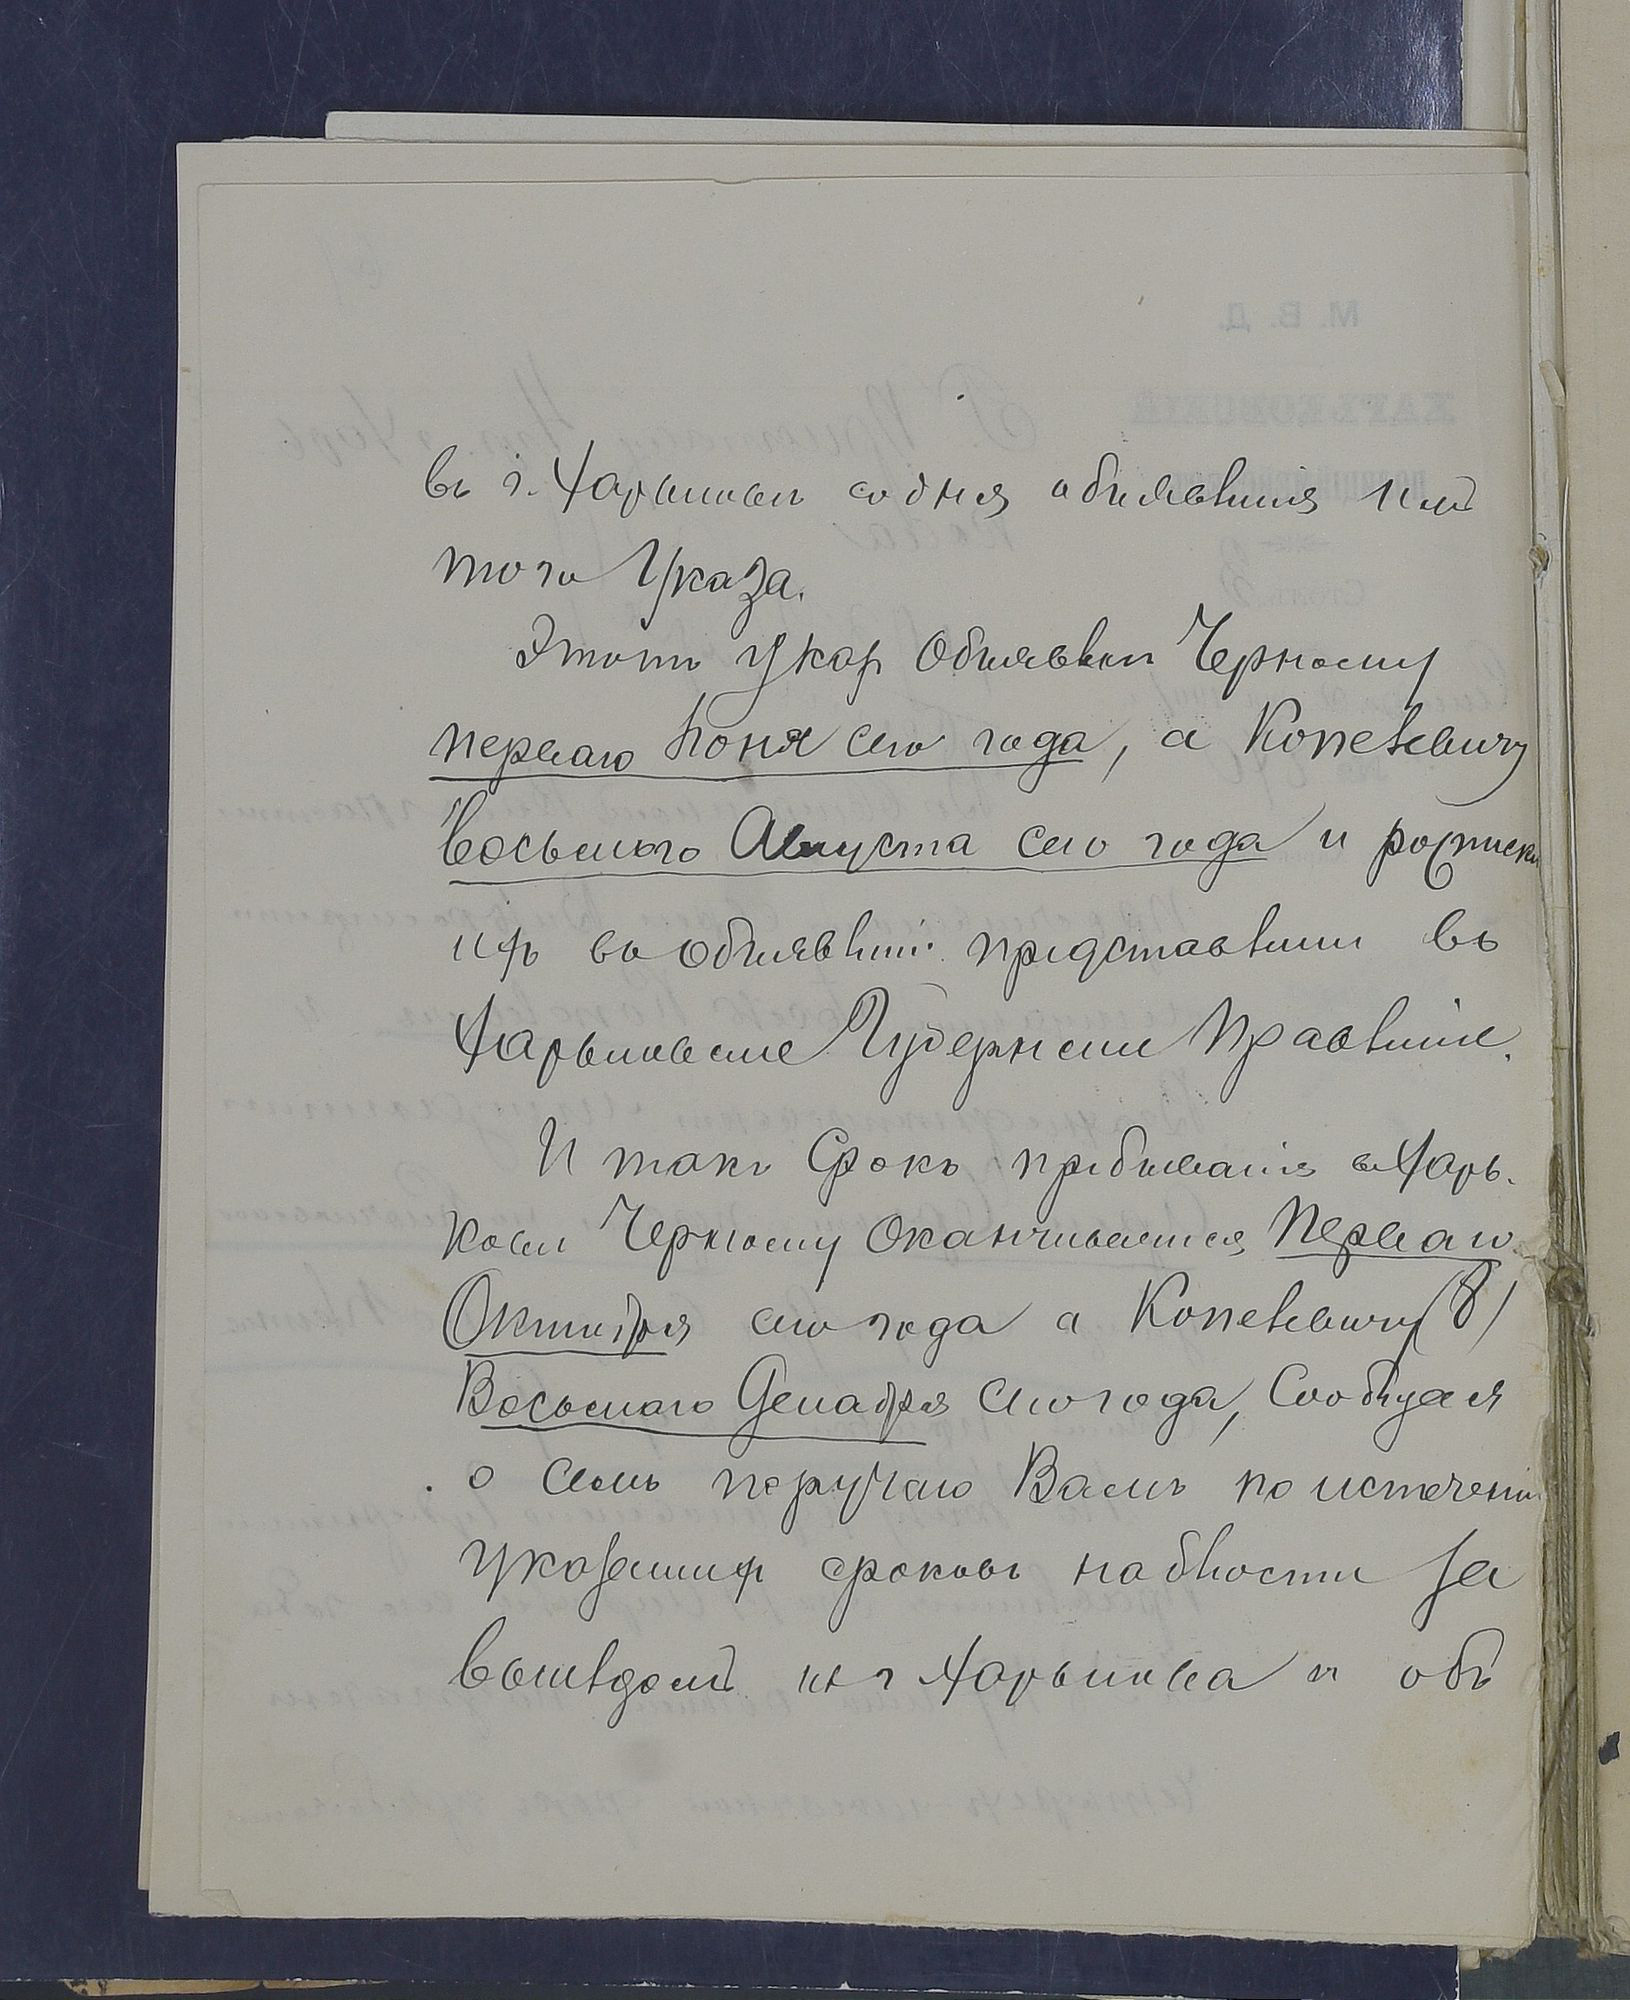 въ г. Харьковѣ со дня объявленія имъ
того Указа.
Этотъ указъ объявленъ Черному
перваго Іюня сего года, а Копѣевичу
Восьмаго Августа сего года и росписки
ихъ въ объявленіи представлены въ
Харьковское Губернское Правленіе.
И такъ срокъ пребыванія въ Харь-
ковѣ Черному оканчивается Перваго
Октября сего года а Копѣевичу (8)
Восьмаго Декабря сего года, Сообщая
о семъ поручаю Вамъ по истеченіи
указанныхъ сроковъ наблюсти за
выѣздомъ изъ г Харькова и объ
М. В. Д.
ХАРЬКОВСКІЙ